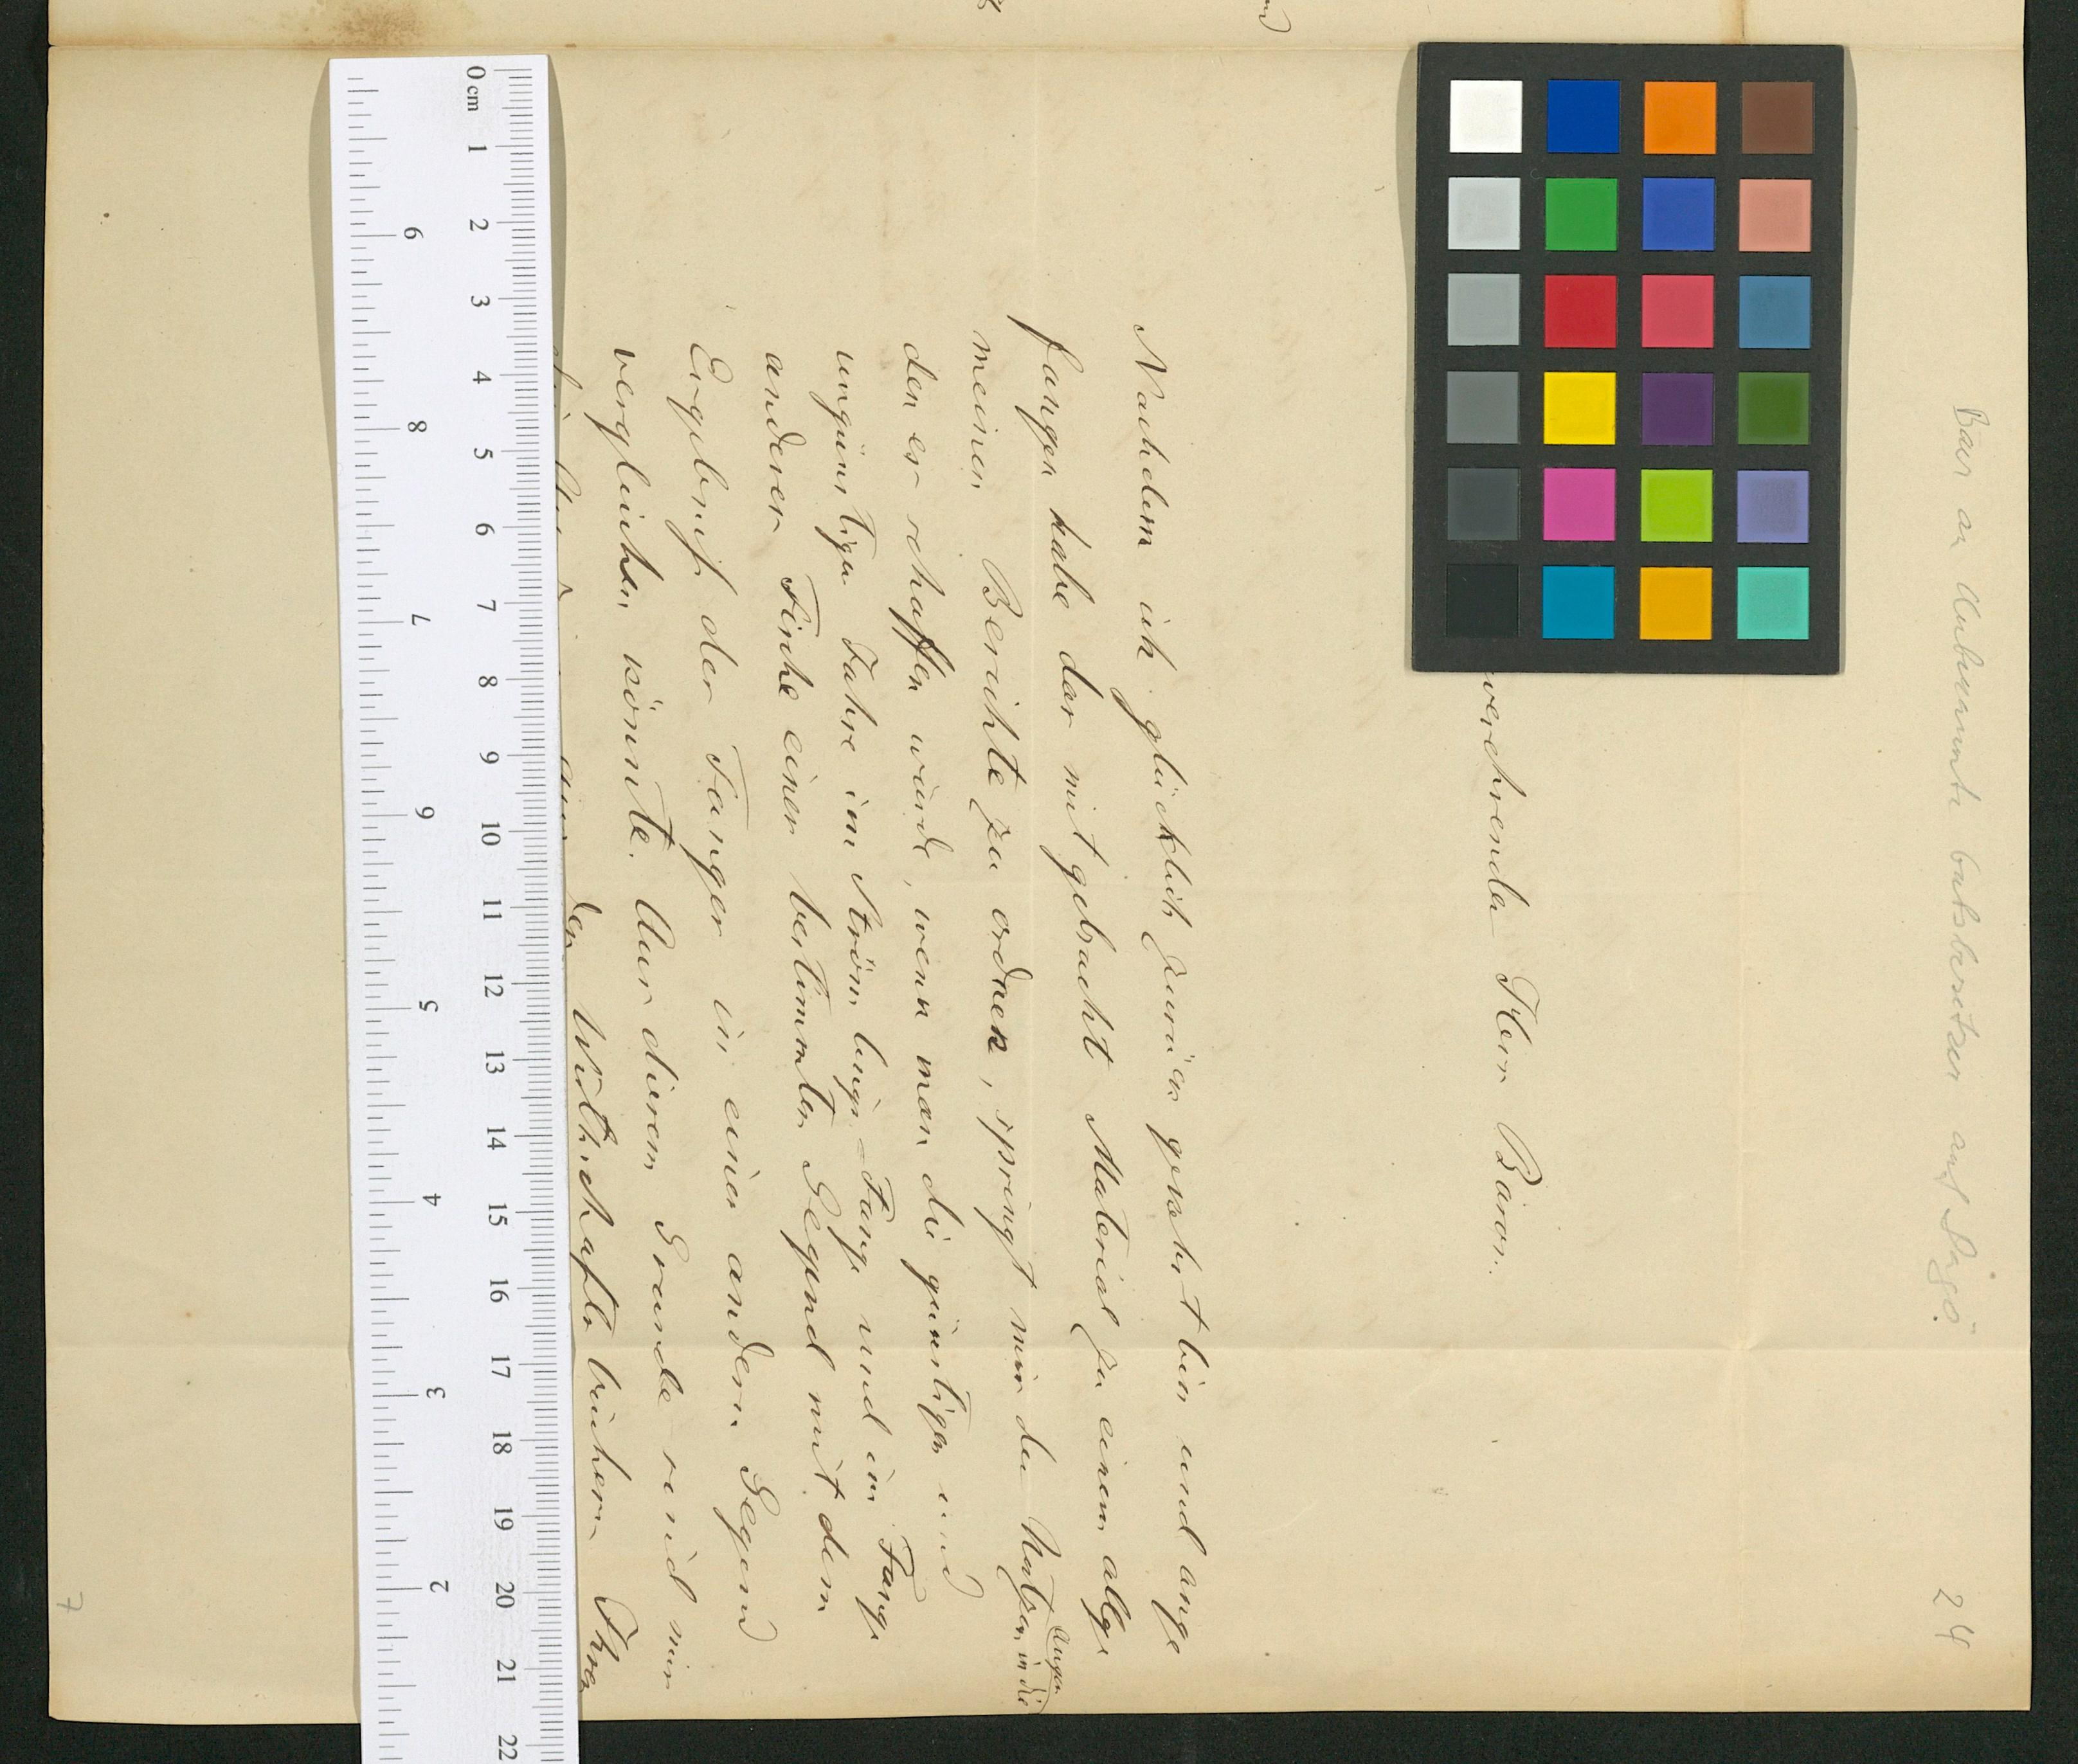 Baer an unbekannte Gutsbesitzer auf Dagö.
24
verehrender Herr Baron.
Nachdem ich glücklich zurück gekehrt bin und ange
fangen habe das mit gebracht Material zu einem allge
meinen Berichte zu ordnen, springt mir der Nutzen in die
Augen
den es schaffen würde, wenn man die günstigen und
ungünstigen Jahre im Strömlings-Fange und im Fange
anderer Fische einer bestimmten Gegend mit dem
Ergebniß des Fanges in einer andern Gegend
vergleichen könnte. Aus diesem Grunde sind mir
den Wirthschafts büchern Ihrer
7
0 cm 1 2 3 4 5 6 7 8 9 10 11 12 13 14 15 16 17 18 19 20 21 22
9 8 7 6 5 4 3 2